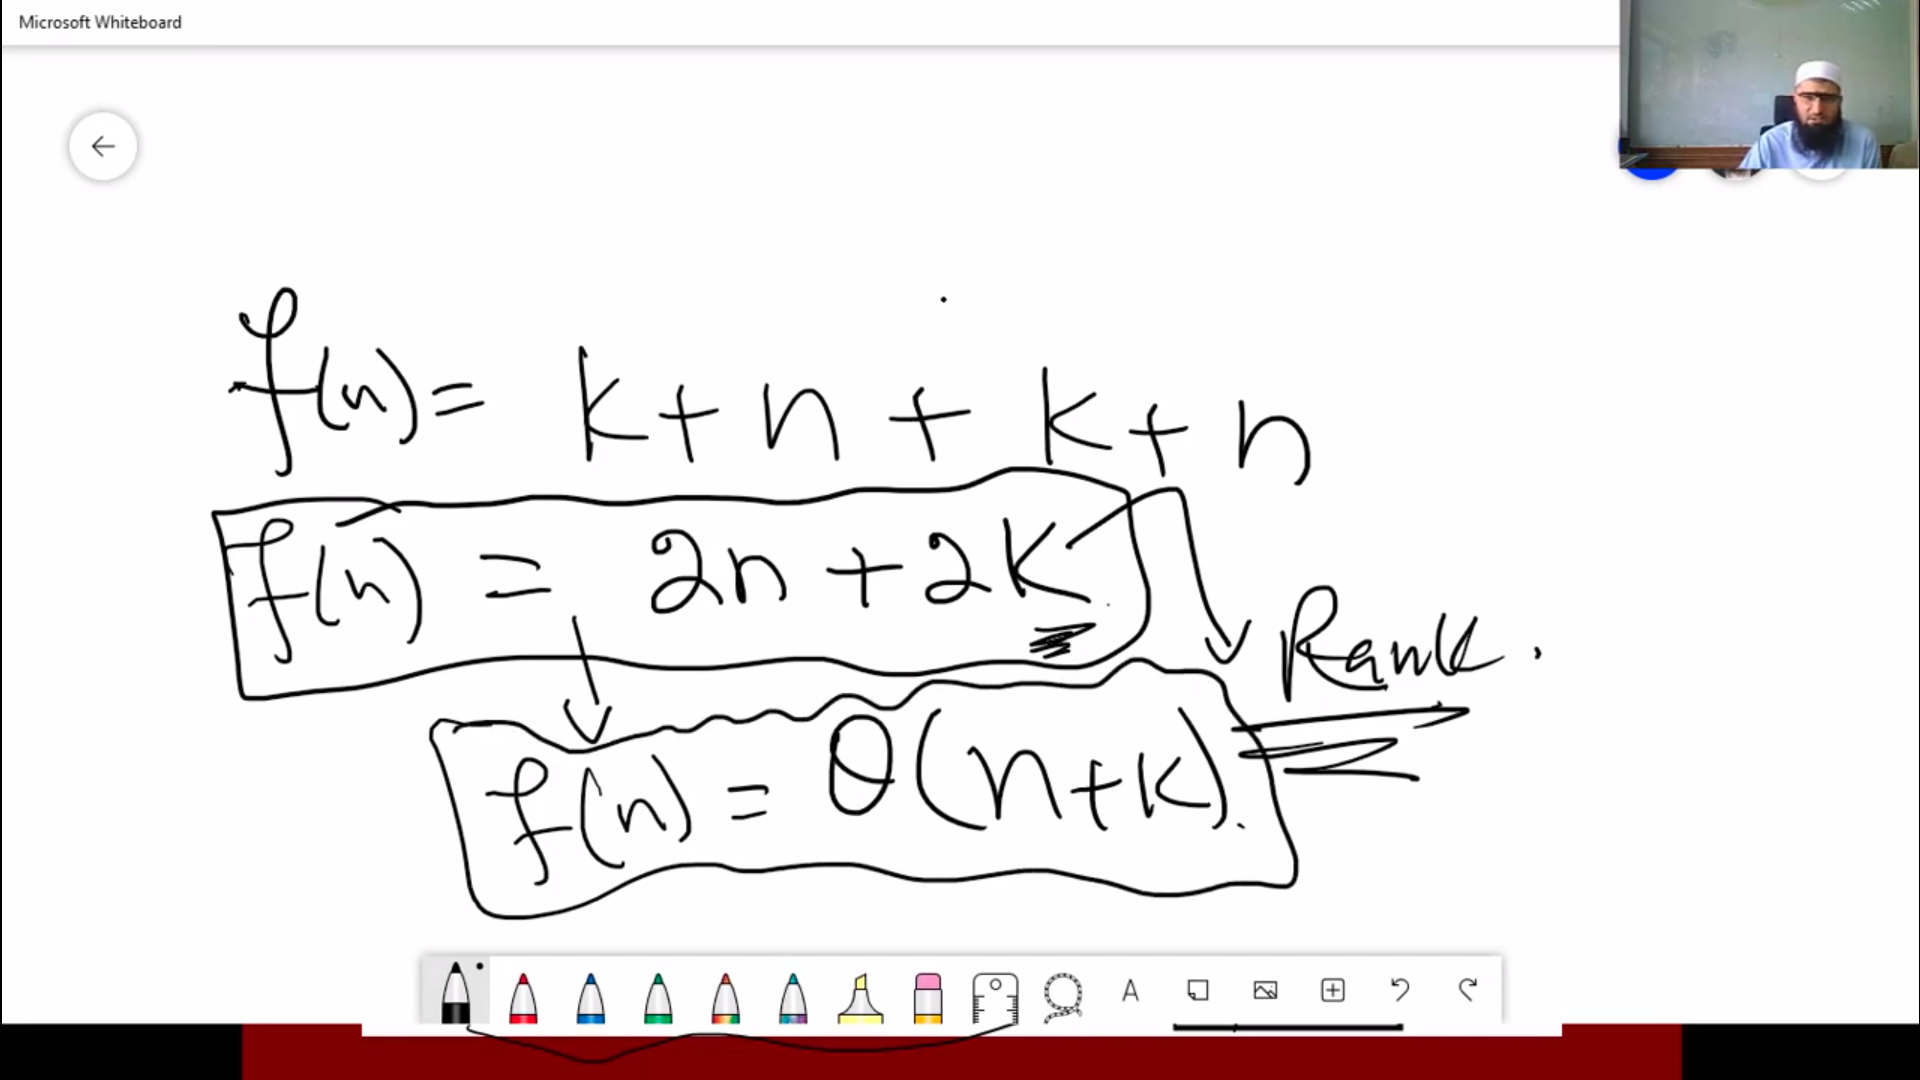 Microsoft Whiteboard
f(n) = k + n + k + n
f(n) = 2n + 2k
Rank.
f(n) = θ(n+k).
A